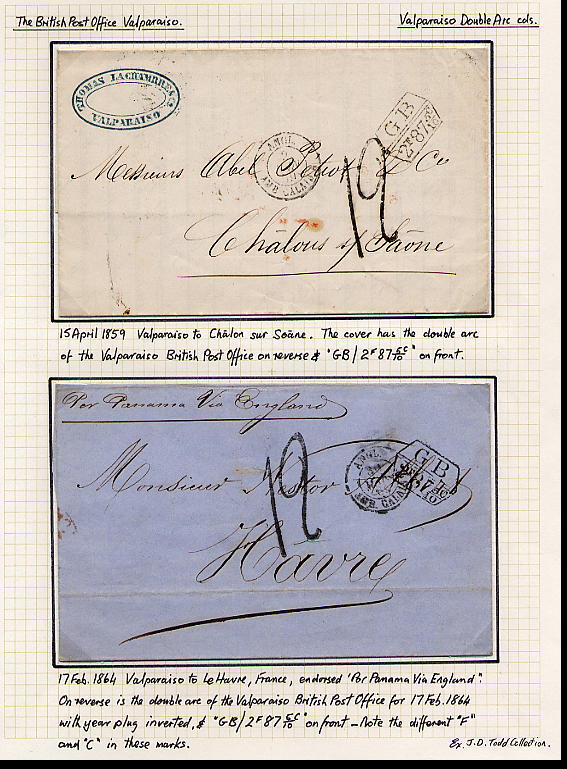 The British Post Office Valparaiso.
Valparaiso Double Arc cds.
THOMAS LACHAMBRE & Co
VALPARAISO
GB
2F 87 4/10
ANGL.
AMB. CALAIS
12
Messieurs Abel & Co
Châlons s/ Sâone
15 April 1859 Valparaiso to Châlon sur Soâne. The cover has the double arc
of the Valparaiso British Post Office on reverse & "GB/2F 87 4c/10" on front.
Por Panama Via England
12
ANGL.
AMB. CALAIS
GB
2F 87
Monsieur Nestor
Hâvre
17 Feb. 1864 Valparaiso to Le Havre, France, endorsed 'Por Panama Via England'.
On reverse is the double arc of the Valparaiso British Post Office for 17 Feb. 1864
with year plug inverted, & "GB/2F 87 4c/10" on front – Note the different "F"
and "C" in these marks.
Ex. J.D. Todd Collection.